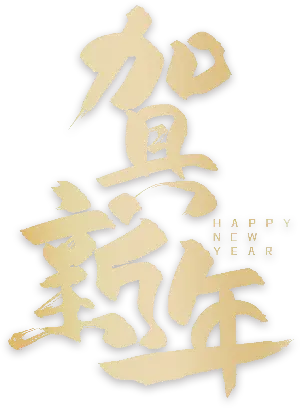 贺新年
HAPPY
NEW
YEAR